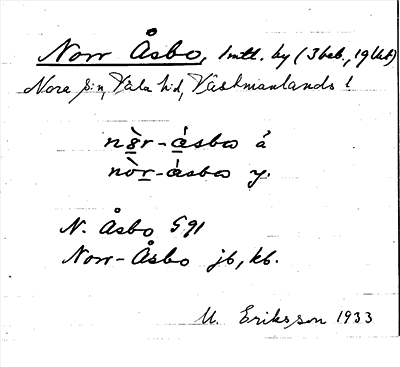 Norr Åsbo, 1mtl. by (3 beb., 19 lht)
Nora sn, Våla hd, Västmanlands l
nǫ̀r-ásbω ä
nòr-ásbω y.
N. Åsbo G 91
Norr-Åsbo jb, kb.
M. Eriksson 1933